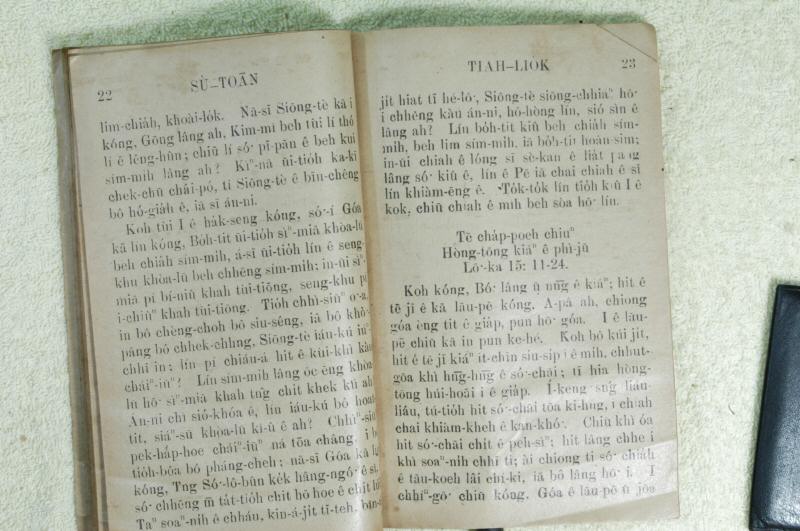 22
SÙ-TOĀN
lim-chiáh, khoài-lók. Nā-sī Siōng-tè kā i
kóng, Gōng lâng ah, Kim-mî beh tùi lí thó
lí ê lêng-hûn; chiū lí só· pī-pān ê beh kui
sím-mih lâng ah? Kìⁿ-nā ūi-tióh ka-kī
chek-chū châi-pó, tī Siōng-tè ê bīn-chêng
bô hó-giàh ê, iā sī án-ni.
Koh tùi I ê hák-seng kóng, só·-í Góa
kā lín kóng, Bóh-tit ūi-tióh sìⁿ-miā khòa-lū
beh chiáh sím-mih, á-sī ūi-tióh lín ê seng-
khu khòa-lū beh chhēng sím-mih; in-ūi sìⁿ-
miā pí bí-niû khah tùi-tiōng, seng-khu pí
i-chiûⁿ khah tùi-tiōng. Tióh chhì-siūⁿ o·-a,
in bô chèng-choh bô siu-sêng, iā bô khò·-
pâng bô chhek-chhng, Siōng-tè iáu-kú iúⁿ-
chhī in; lín pí chiáu-á hit ê kùi-khì kàu
cháiⁿ-iūⁿ? Lín sím-mih lâng ōe ēng khòa-
lū hō· sìⁿ-miā khah tn̂g chit khek kú ah?
Án-ni chì sió-khóa ê, lín iáu-kú bô
tit, siáⁿ-sū khòa-lū kî-û ê ah?
pek-háp-hoe cháiⁿ-iūⁿ ná tōa châng,
tióh-bôa bô pháng-cheh; nā-sī Góa kā
kóng, Tng Só·-lô-bûn kèk hâng-ngó· ê
só· chhēng m̄ tát-tióh chit hō hoe ê chit
Taⁿ soaⁿ-nih ê chháu, kin-á-jit tī-teh,
TIAH-LIOK
23
jit hiat tī hé-lô·, Siōng-tè siōng-chhiaⁿ hō·
i chhēng kàu án-ni, hô-hòng lín, sió sìn ê
lâng ah? Lín bóh-tit kiû beh chiáh sím-
mih, beh lim sím-mih, iā bóh-tit hoân-sim;
in-ūi chiah ê lóng sī sè-kan ê liát pang
lâng só· kiû ê, lín ê Pē iā chai chiah ê sī
lín khiàm-ēng ê. Tók-tók lín tióh kiû I ê
kok, chiū chiah ê mih beh sòa hō· lín.
Tē cháp-poeh chiuⁿ
Hòng-tōng kiáⁿ ê phì-jū
Lō·-ka 15: 11-24.
Koh kóng, Bó· lâng ū nn̄g ê kiáⁿ; hit ê
tē jī ê kā lāu-pē kóng, A-pá ah, chiong
góa èng tit ê giáp, pun hō· góa. I ê lāu-
pē chiū kā in pun ke-hé. Koh bô kúi jit,
hit ê tē jī kiáⁿ it-chīn siu-sip i ê mih, chhut-
gōa khì hn̄g-hn̄g ê só·-chāi; tī hia hòng-
tōng húi-hoāi i ê giáp. Í-keng sńg liáu-
liáu, tú-tióh hit só·-chāi tōa ki-hng, i chiah
chai khiàm-kheh ê kan-khó·. Chiū khì óa
hit só·-chāi chit ê peh-sìⁿ; hit lâng chhe i
khì soaⁿ-nih chhī ti; ài chiong ti só· chiáh
ê tāu-koeh lâi chí-ki, iā bô lâng hō· i. I
chhíⁿ-gō· chiū kóng, Góa ê lāu-pē ū jōa